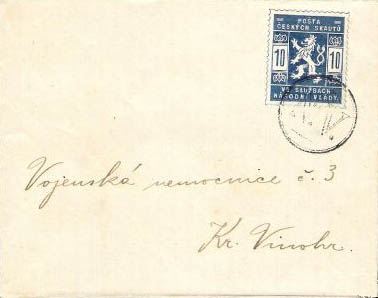 POŠTA
ČESKÝCH SKAUTŮ
10 10
VE SLUŽBÁCH
NÁRODNÍ VLÁDY.
Vojenská nemocnice č. 3
Kr. Vinohr.